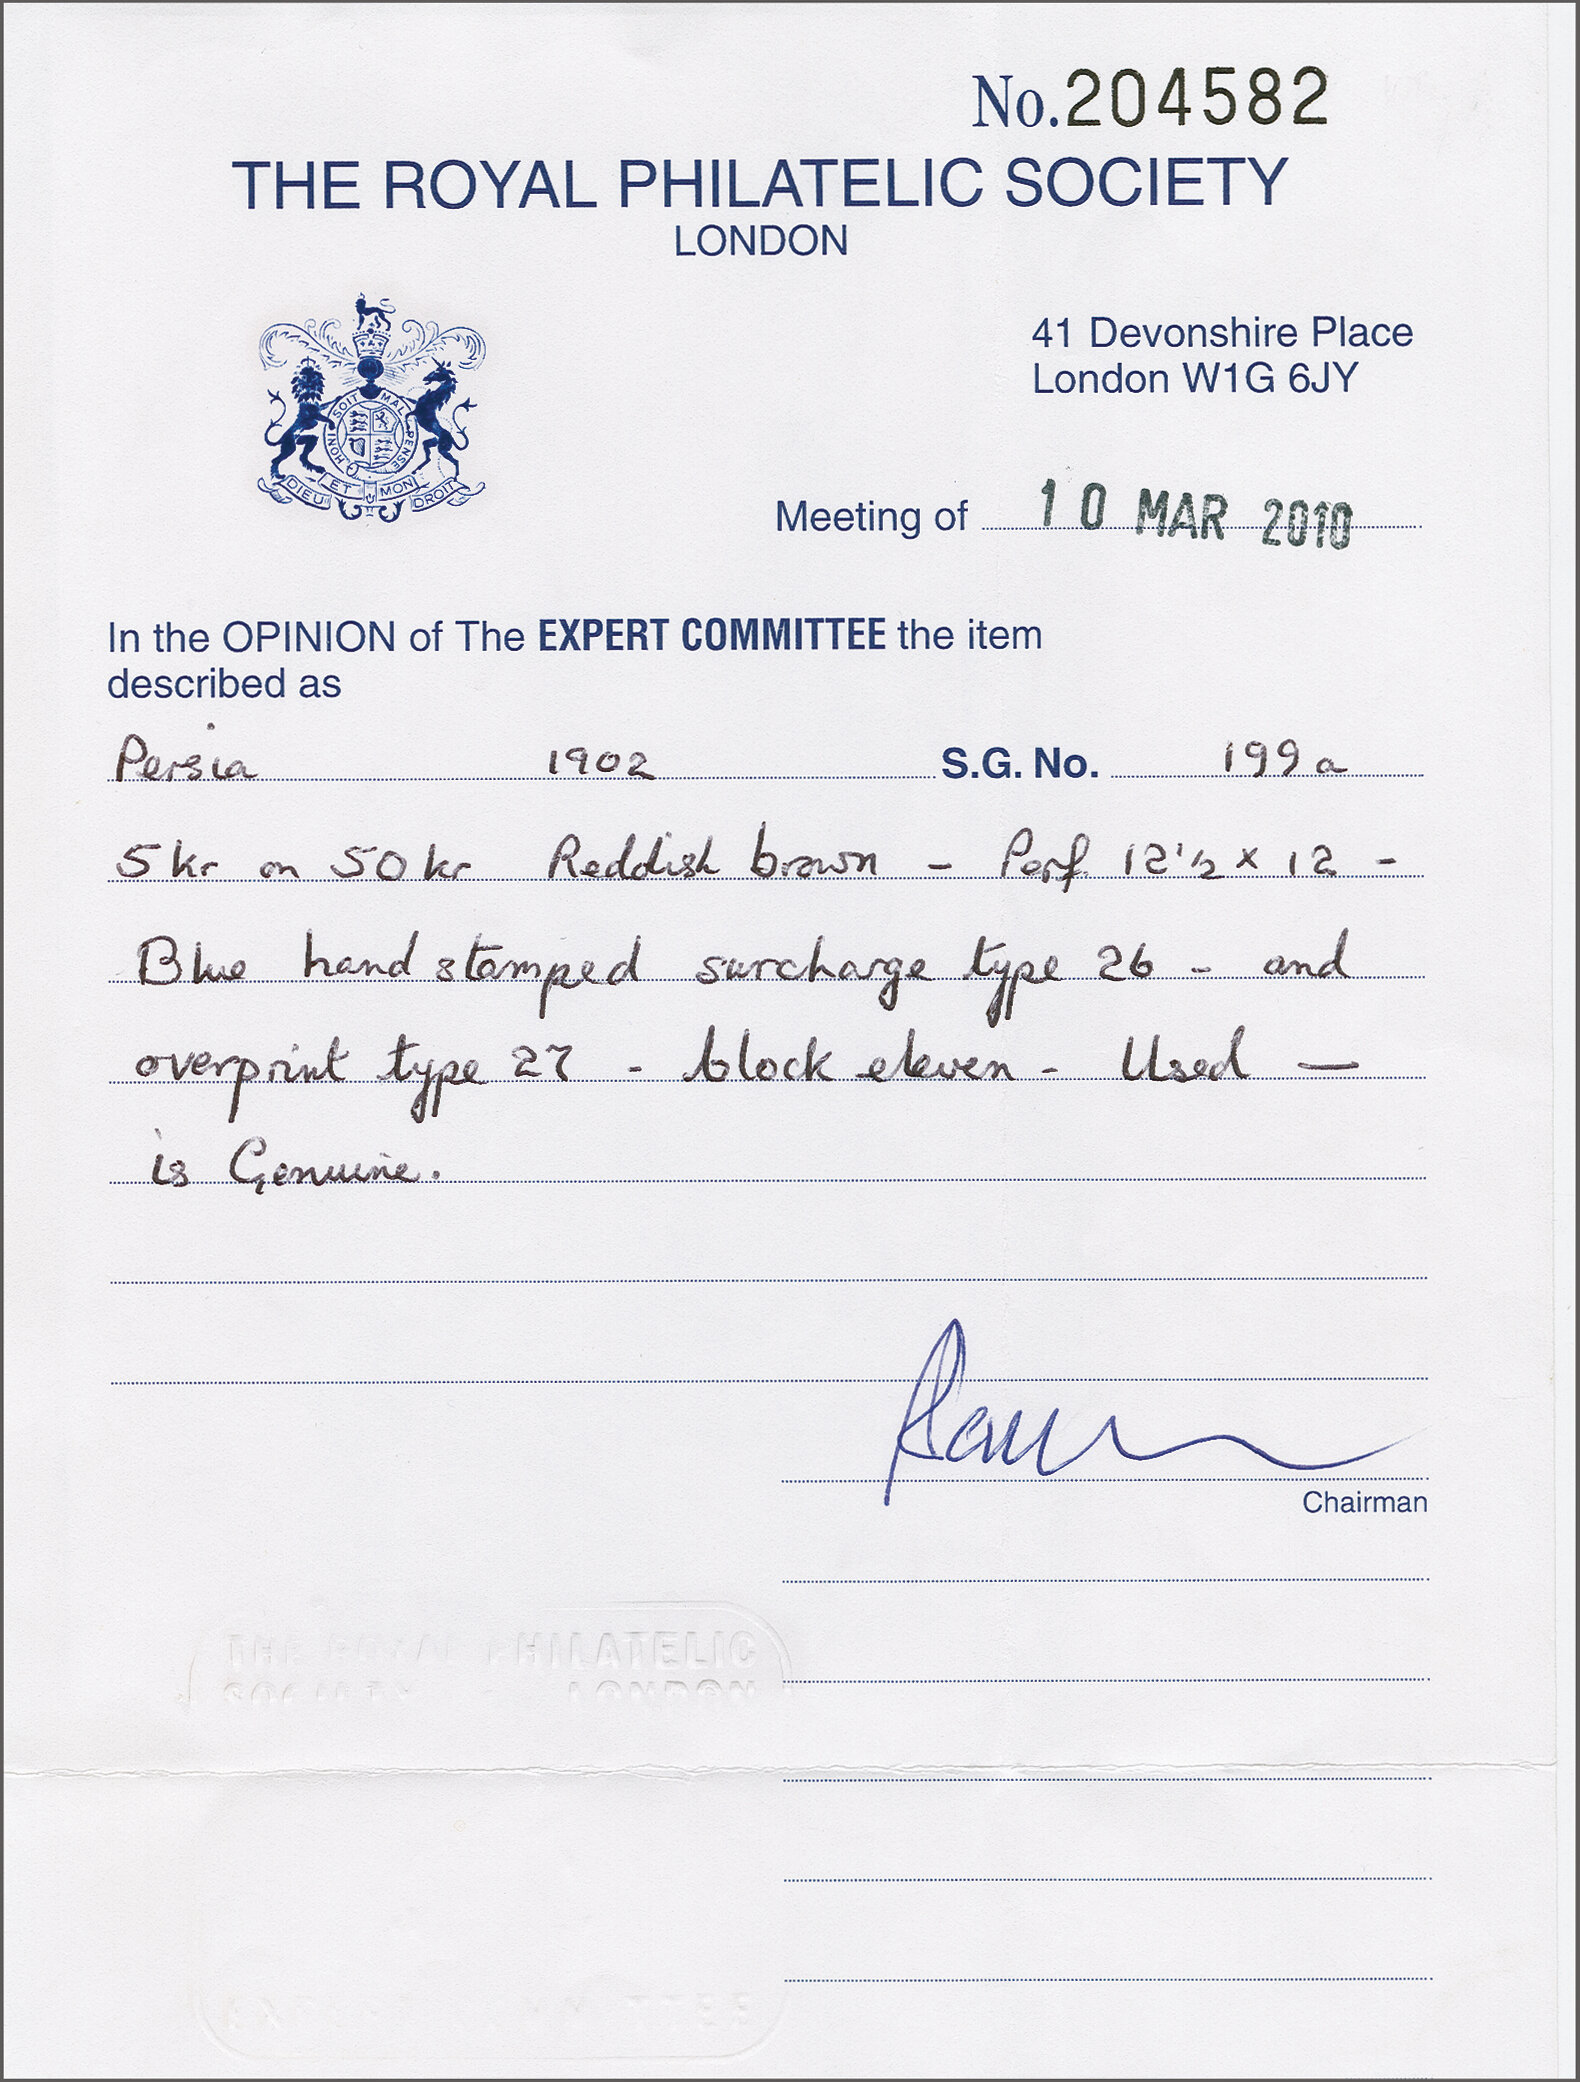 No.204582
THE ROYAL PHILATELIC SOCIETY
LONDON
41 Devonshire Place
London W1G 6JY
HONI SOIT MAL PENSE
DIEU ET MON DROIT
Meeting of 10 MAR 2010
In the OPINION of The EXPERT COMMITTEE the item
described as
Persia 1902 S.G. No. 199a
5kr on 50kr Reddish brown - Perf. 12½ x 12 -
Blue handstamped surcharge type 26 - and
overprint type 27 - block eleven - Used —
is Genuine.
Chairman
THE ROYAL PHILATELIC
SOCIETY LONDON